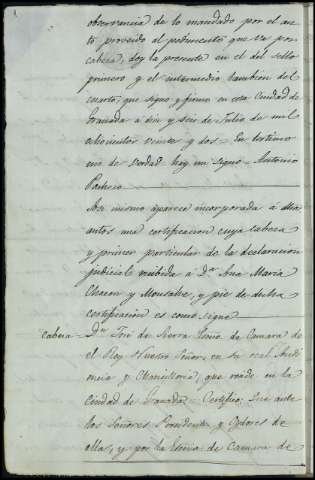 observancia de lo mandado por el au
to proveido al pedimento que va por
cabeza, doy la presente en el del sello
primero y el intermedio tambien del
cuarto, que signo y firmo en esta Ciudad de
Granada a diez y seis de Julio de mil
ochocientos veinte y dos = En testimo
nio de verdad hay un signo = Antonio
Pacheco
Asi mismo aparece incorporada á dhos
autos una certificacion cuya cabeza
y primer particular de la declaracion
judicial recibida á Dª Ana Maria
Chacon y y pie de dicha
certificacion es como sigue
Cabeza = Dn José de Sierra Esno de Camara de
el Rey Nuestro Señor, en su real Audi
encia y Chancilleria, que reside en la
Ciudad de Granada = Certifico: Que ante
los Señores Presidente y Oydores de
ella, y por la Escnia de Camara de